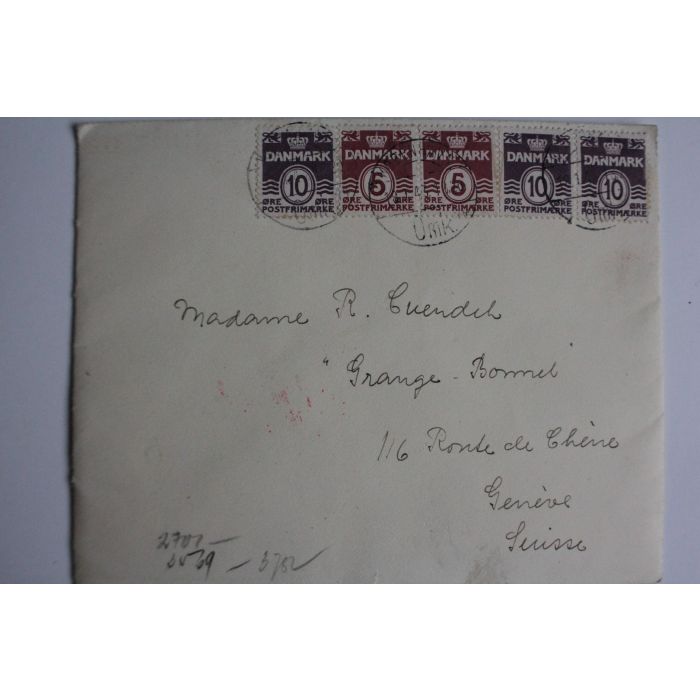 DANMARK 10 ØRE ØRE POSTFRIMÆRKE
DANMARK 5 ØRE ØRE POSTFRIMÆRKE
DANMARK 5 ØRE ØRE POSTFRIMÆRKE
DANMARK 10 ØRE ØRE POSTFRIMÆRKE
DANMARK 10 ØRE ØRE POSTFRIMÆRKE
OmK.
Madame R. Cuendet
"Grange-Bonnet"
116 Route de Chêne
Genève
Suisse